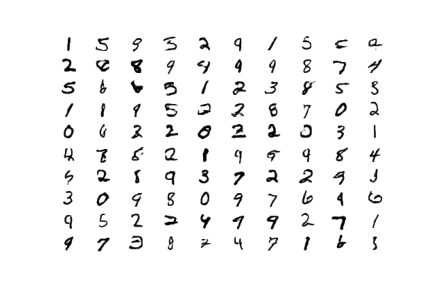 1 5 9 3 2 9 1 5 5 2
2 8 8 9 4 9 9 8 7 4
5 6 6 3 1 2 3 8 5 3
1 1 9 5 2 2 8 7 0 2
0 6 2 2 0 2 2 0 3 1
4 8 8 2 1 9 9 9 8 4
5 2 8 9 3 7 2 2 9 3
3 0 9 8 0 9 7 6 4 6
9 5 2 2 4 9 9 2 7 1
9 7 3 8 2 4 7 1 6 3